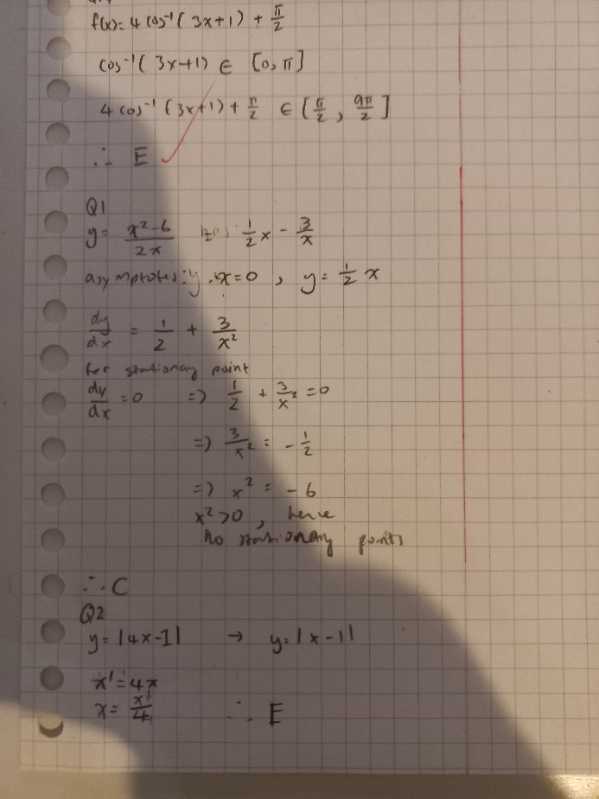 f(x)= 4 cos⁻¹( 3x+1) + π/2
cos⁻¹( 3x+1) ∈ [0, π]
4 cos⁻¹(3x+1) + π/2 ∈ [π/2, 9π/2]
∴ E
Q1
y= (x²-6)/2x 1/2 x - 3/x
asymptotes: x=0 , y= 1/2 x
dy/dx = 1/2 + 3/x²
for stationary point
dy/dx =0 => 1/2 + 3/x² =0
=> 3/x² = -1/2
=> x² = -6
x²>0 , hence
no stationary points
∴ C
Q2
y= |4x-1| → y= |x-1|
x'=4x
x= x'/4 ∴ E